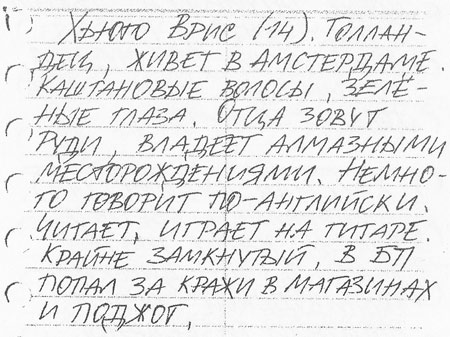 Хьюго Врис (14). Голлан-
дец, живет в Амстердаме.
Каштановые волосы, зелё-
ные глаза. Отца зовут
Руди, владеет алмазными
месторождениями. Немно-
го говорит по-английски.
Читает, играет на гитаре.
Крайне замкнутый, в БП
попал за кражи в магазинах
и поджог.